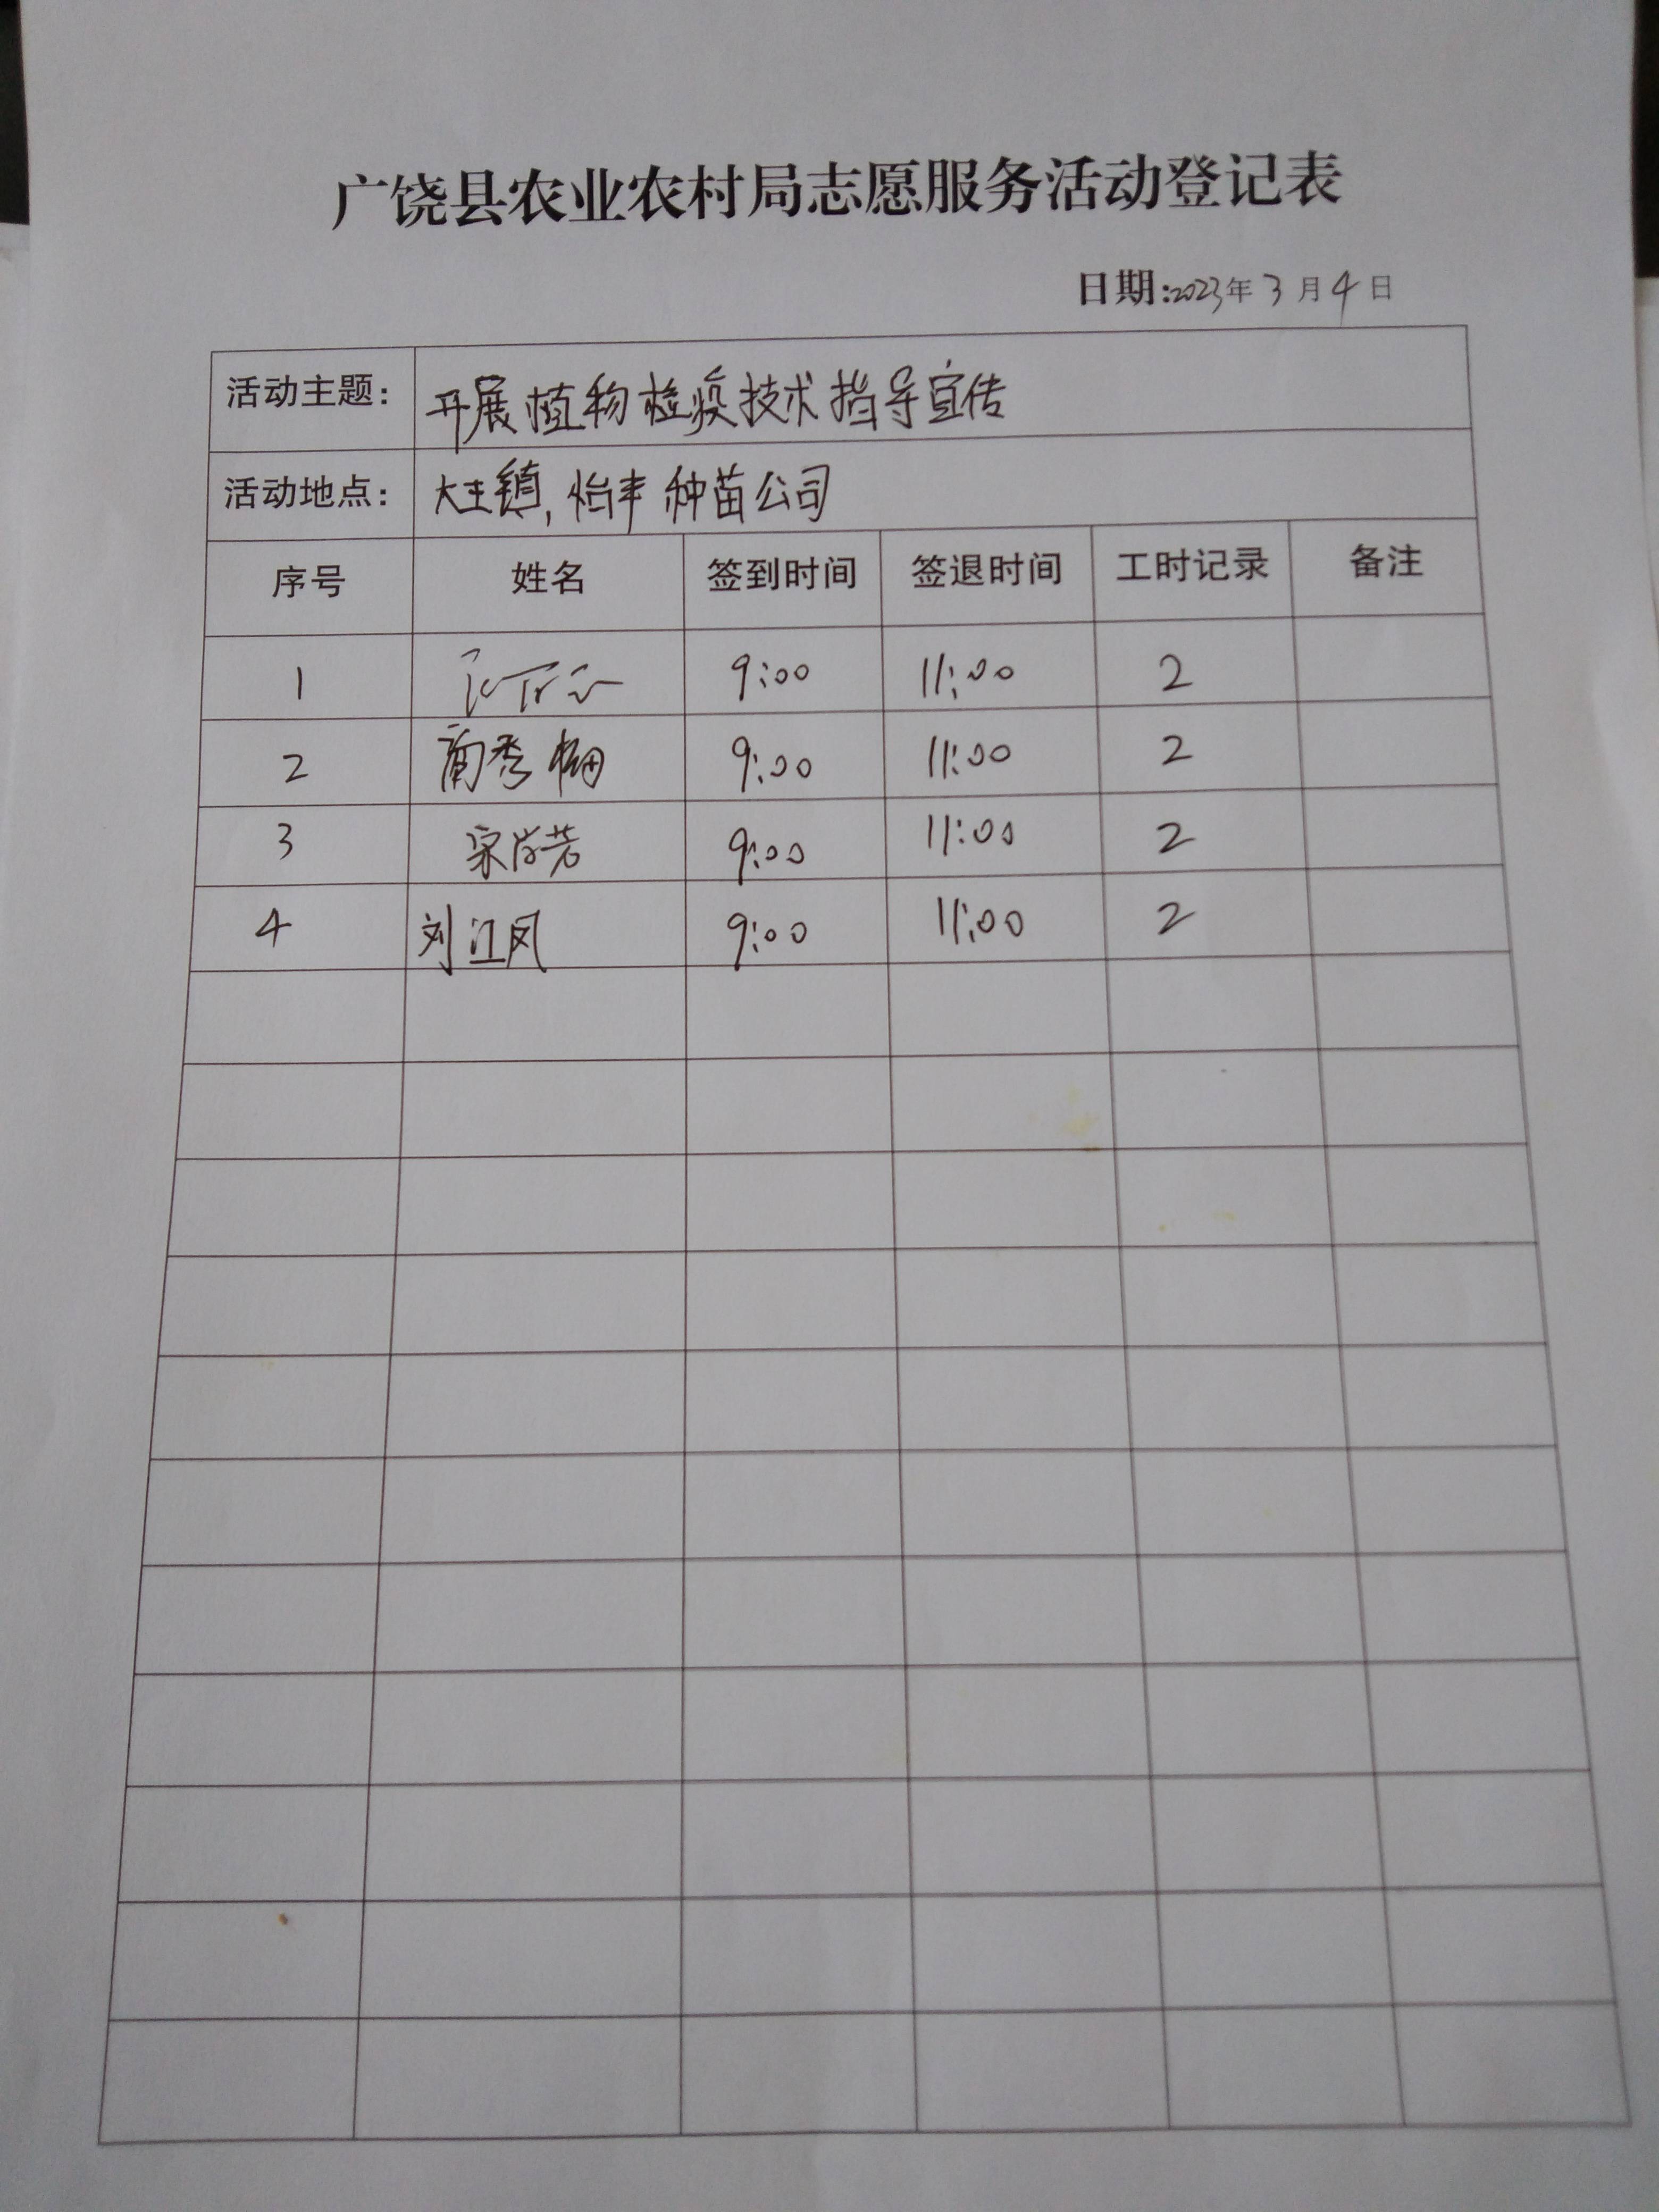 广饶县农业农村局志愿服务活动登记表
日期:2023年3月4日
活动主题: 开展植物检疫技术指导宣传
活动地点: 大王镇,怡丰种苗公司
序号 姓名 签到时间 签退时间 工时记录 备注
1 9:00 11:00 2
2 9:00 11:00 2
3 9:00 11:00 2
4 刘江凤 9:00 11:00 2